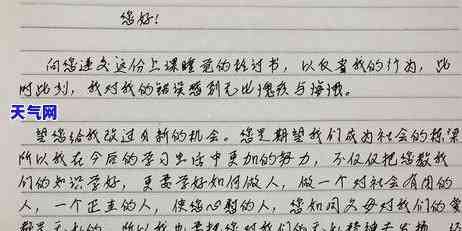 您好！
向您递交这份上课睡觉的检讨书，以反省我的行为，此
时此刻，我对我的错误感到无比愧疚与悔恨。
天气网
望您给我改过自新的机会。您是期望我们成为社会的栋梁
所以我在今后的学习生活中更加的努力，不仅仅把您教我
们的知识学好，更要学好如何做人，做一个对社会有用的
人，一个正直的人，使您心慰的人，您如同父母对我们的爱